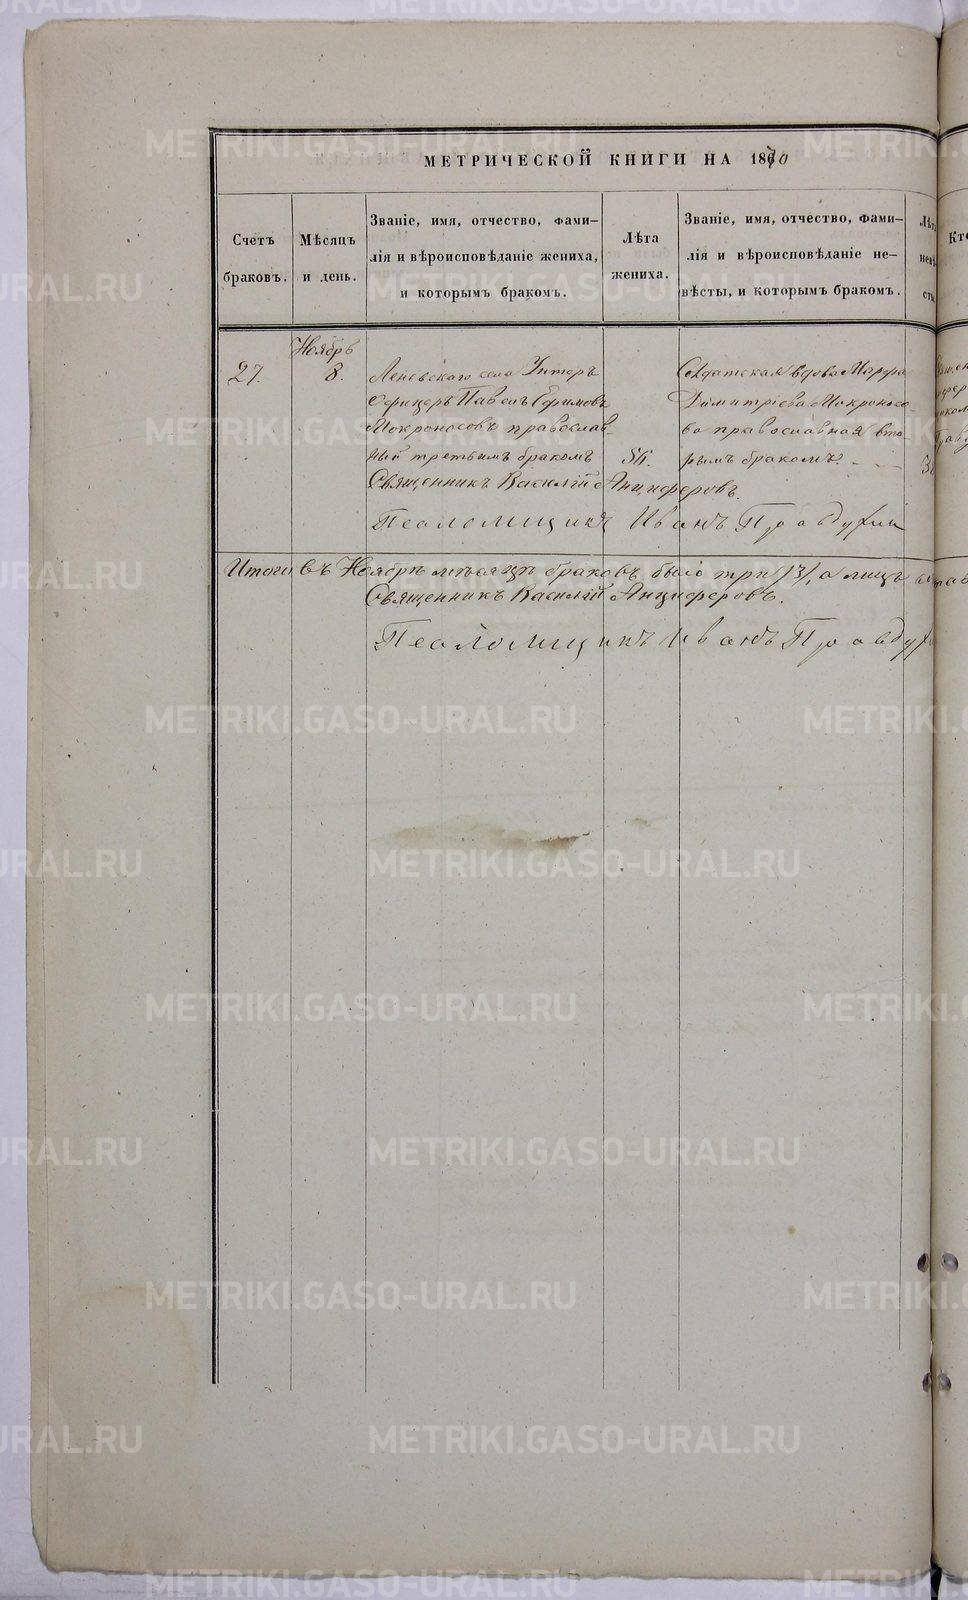 МЕТРИЧЕСКОЙ КНИГИ НА 1870
Счетъ
браковъ.
Мѣсяцъ
и день.
Званіе, имя, отчество, фами-
лія и вѣроисповѣданіе жениха,
и которымъ бракомъ.
Лѣта
жениха.
Званіе, имя, отчество, фами-
лія и вѣроисповѣданіе не-
вѣсты, и которымъ бракомъ.
27.
Ноябрь
8.
Леневскаго села Унтеръ
Офицеръ Павелъ Ефимовъ
Мокроносовъ православ-
ный третьимъ бракомъ
54.
Солдатская вдова Марѳа
Димитріева Мокроносо-
ва православная вто-
рымъ бракомъ.
Священникъ Василій Анциферовъ.
Псаломщикъ Иванъ
Итого въ Ноябрѣ мѣсяцѣ браковъ было три /3/, а лицъ
Священникъ Василій Анциферовъ.
Псаломщикъ Иванъ
METRIKI.GASO-URAL.RU